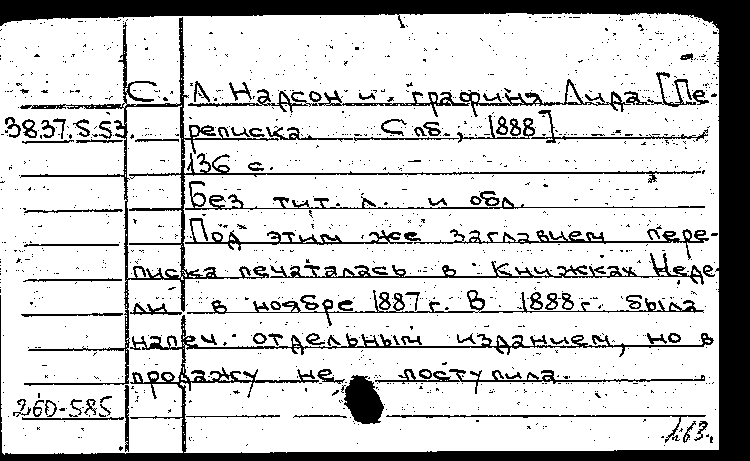 С. Л. Надсон и графиня Лида. [Пе-
3837.S.53. реписка. Спб., 1888]
136 с.
Без тит. л. и обл.
Под этим же заглавием пере-
писка печаталась в Книжках Неде-
ли в ноябре 1887 г. В 1888 г. была
напеч. отдельным изданием, но в
продажу не поступила.
260-585